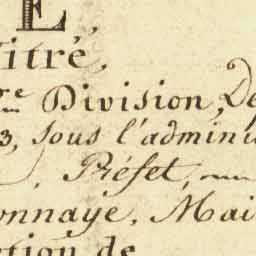 E,
Titré,
re Division, De
3, sous l'admini
Préfet,
onnaye, Mai
ction de